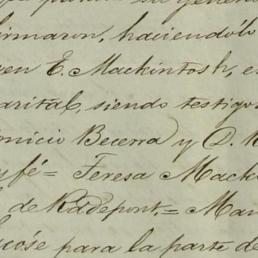 firmaron, haciéndolo
en E. Mackintosh, e
arital, siendo testigo
nicio Becerra y D. R
fé = Teresa Mack
de Raepont, = Man
cóse para la parte de